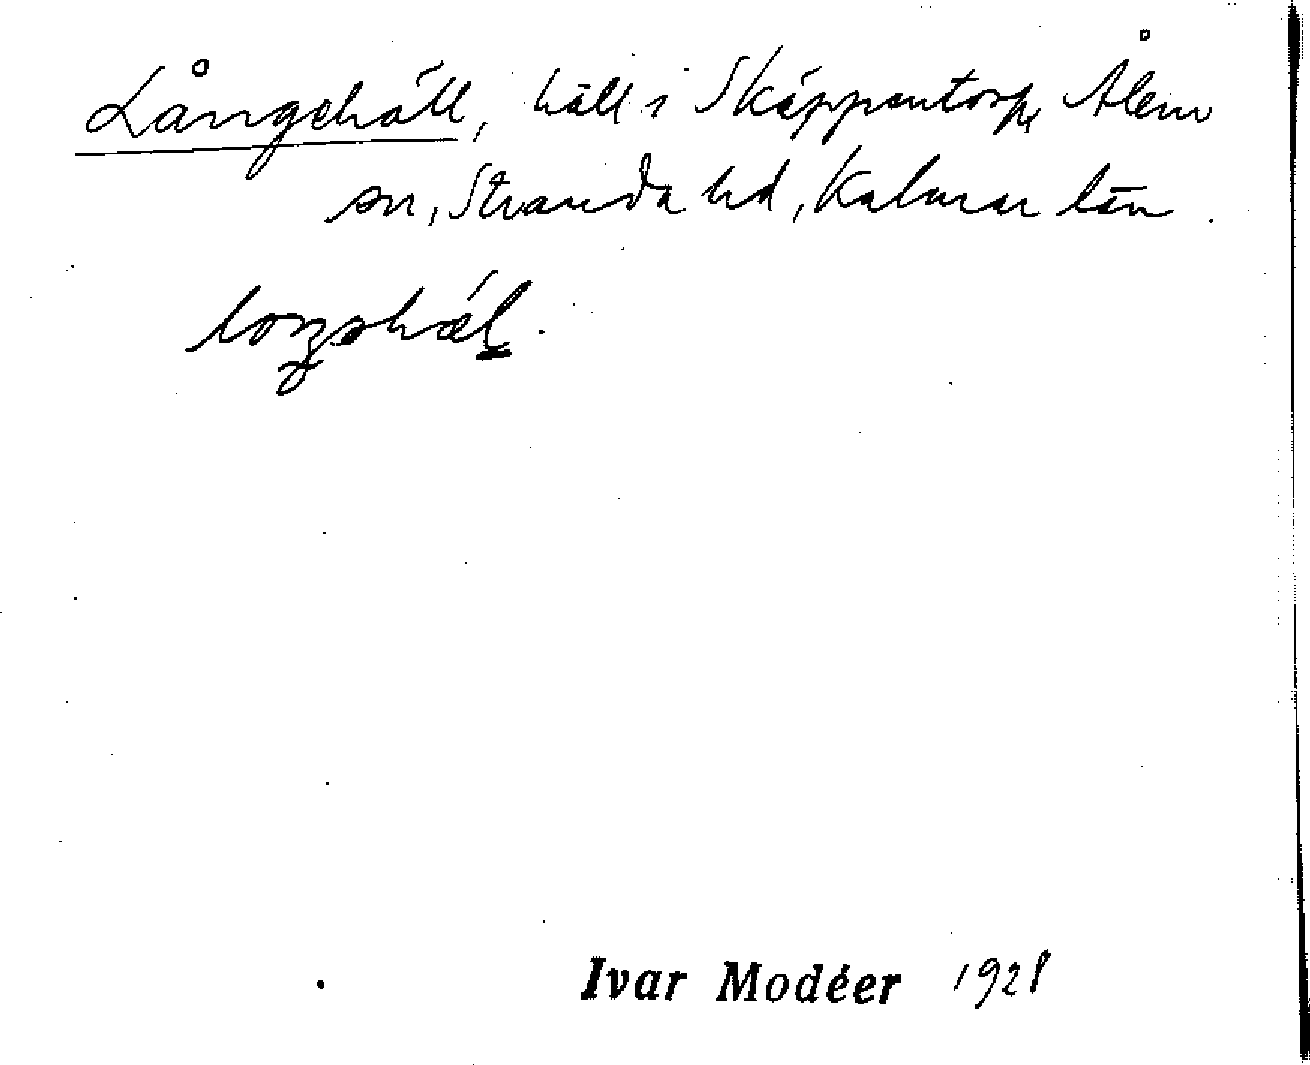 Långehäll, häll i Skäppentorp, Ålem
sn, Stranda hd, Kalmar län.
Ivar Modéer 1928